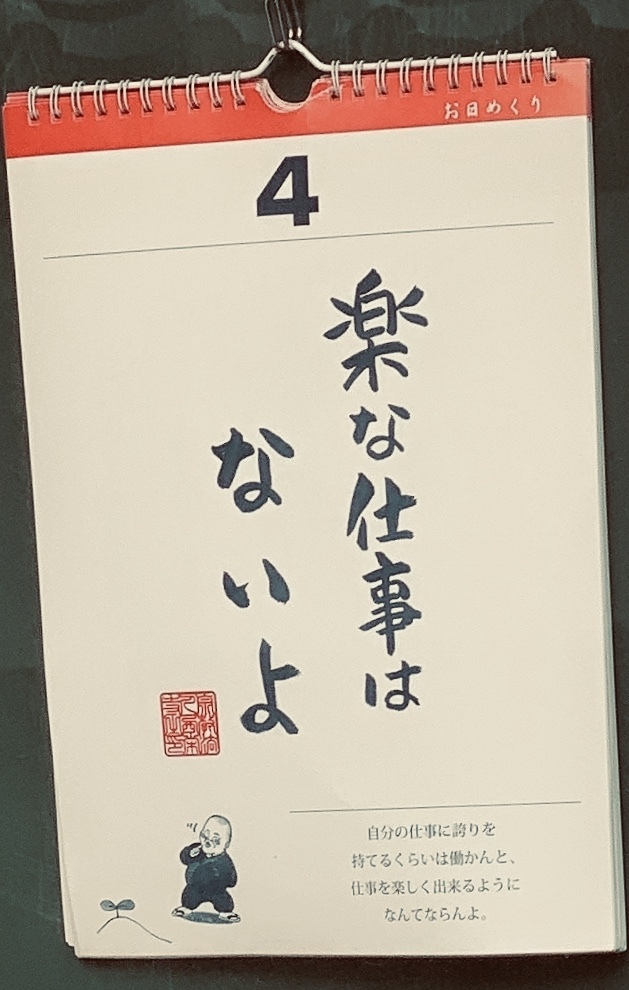 お日めくり
4
楽な仕事は
ないよ
自分の仕事に誇りを
持てるくらいは働かんと、
仕事を楽しく出来るように
なんてならんよ。